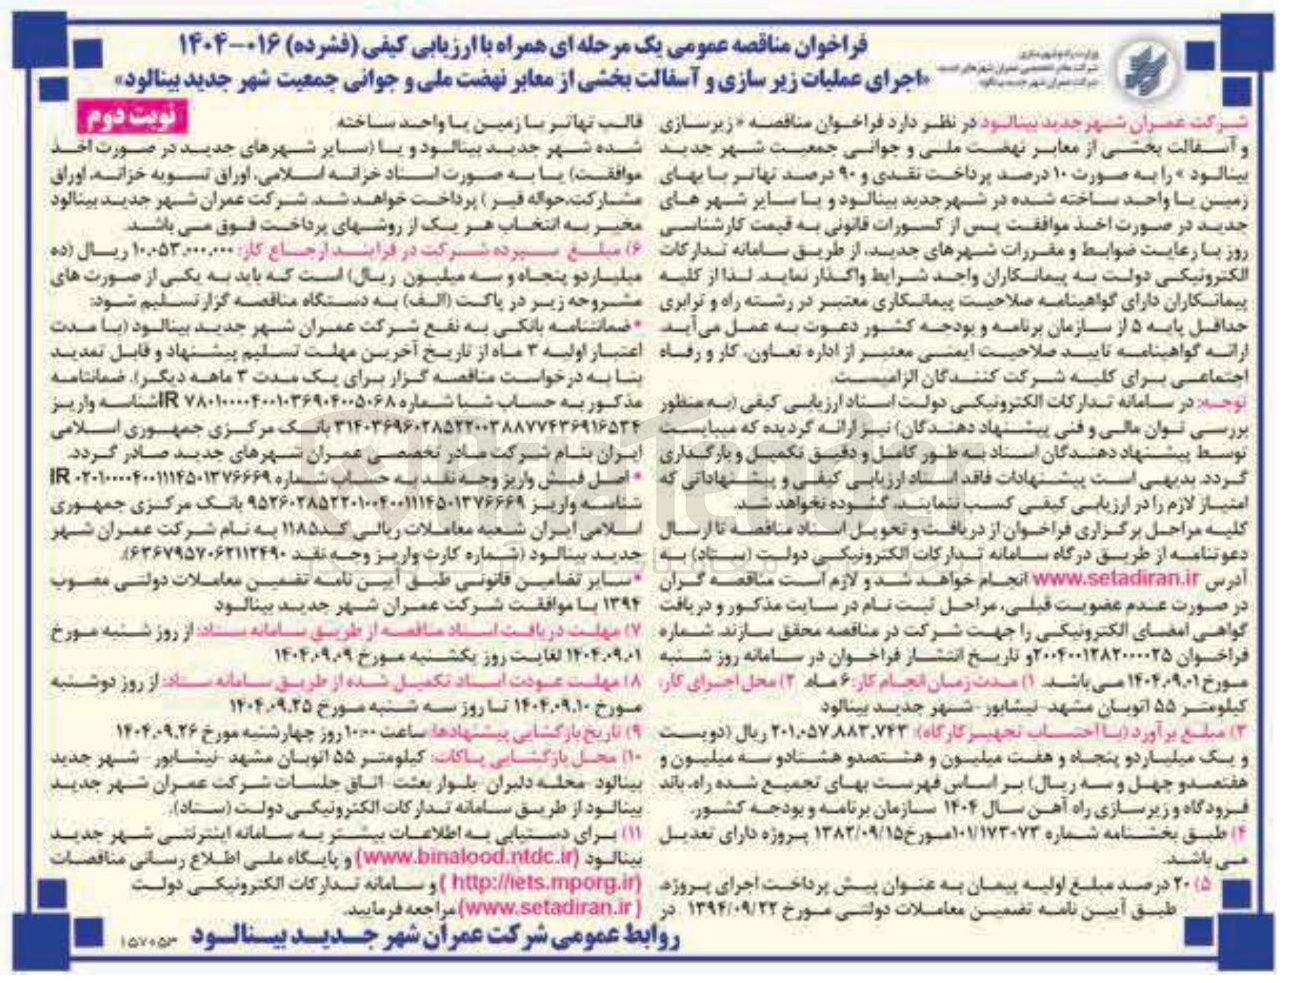 وزارت راه و شهرسازی
شرکت مادر تخصصی عمران شهرهای جدید
شرکت عمران شهر جدید بینالود
فراخوان مناقصه عمومی یک مرحله ای همراه با ارزیابی کیفی (فشرده) ۰۱۶-۱۴۰۴
«اجرای عملیات زیر سازی و آسفالت بخشی از معابر نهضت ملی و جوانی جمعیت شهر جدید بینالود»
نوبت دوم
شرکت عمران شهر جدید بینالود در نظر دارد فراخوان مناقصه « زیرسازی
و آسفالت بخشی از معابر نهضت ملی و جوانی جمعیت شهر جدید
بینالود » را به صورت ۱۰ درصد پرداخت نقدی و ۹۰ درصد تهاتر با بهای
زمین یا واحد ساخته شده در شهر جدید بینالود و یا سایر شهر های
جدید در صورت اخذ موافقت پس از کسورات قانونی به قیمت کارشناسی
روز با رعایت ضوابط و مقررات شهرهای جدید، از طریق سامانه تدارکات
الکترونیکی دولت به پیمانکاران واجد شرایط واگذار نماید. لذا از کلیه
پیمانکاران دارای گواهینامه صلاحیت پیمانکاری معتبر در رشته راه و ترابری
حداقل پایه ۵ از سازمان برنامه و بودجه کشور دعوت به عمل می آید.
ارائه گواهینامه تایید صلاحیت ایمنی معتبر از اداره تعاون، کار و رفاه
اجتماعی برای کلیه شرکت کنندگان الزامیست.
توجه: در سامانه تدارکات الکترونیکی دولت اسناد ارزیابی کیفی (به منظور
بررسی توان مالی و فنی پیشنهاد دهندگان) نیز ارائه گردیده که میبایست
توسط پیشنهاد دهندگان اسناد به طور کامل و دقیق تکمیل و بارگذاری
گردد. بدیهی است پیشنهادات فاقد اسناد ارزیابی کیفی و پیشنهاداتی که
امتیاز لازم را در ارزیابی کیفی کسب ننمایند، گشوده نخواهد شد.
کلیه مراحل برگزاری فراخوان از دریافت و تحویل اسناد مناقصه تا ارسال
دعوتنامه از طریق درگاه سامانه تدارکات الکترونیکی دولت (ستاد) به
آدرس www.setadiran.ir انجام خواهد شد و لازم است مناقصه گران
در صورت عدم عضویت قبلی، مراحل ثبت نام در سایت مذکور و دریافت
گواهی امضای الکترونیکی را جهت شرکت در مناقصه محقق سازند. شماره
فراخوان ۲۰۰۴۰۰۱۲۸۲۰۰۰۰۲۵ و تاریخ انتشار فراخوان در سامانه روز شنبه
مورخ ۱۴۰۴.۰۹.۰۱ می باشد. ۱) مدت زمان انجام کار: ۶ ماه. ۲) محل اجرای کار:
کیلومتر ۵۵ اتوبان مشهد-نیشابور-شهر جدید بینالود
۳) مبلغ برآورد (با احتساب تجهیز کارگاه): ۲۰۱،۰۵۷،۸۸۳،۷۴۳ ریال (دویست
و یک میلیارد و پنجاه و هفت میلیون و هشتصد و هشتاد و سه میلیون و
هفتصد و چهل و سه ریال) بر اساس فهرست بهای تجمیع شده راه، باند
فرودگاه و زیرسازی راه آهن سال ۱۴۰۴ سازمان برنامه و بودجه کشور.
۴) طبق بخشنامه شماره ۱۰۱/۱۷۳۰۷۳ مورخ ۱۳۸۲/۰۹/۱۵ پروژه دارای تعدیل
می باشد.
۵) ۲۰ درصد مبلغ اولیه پیمان به عنوان پیش پرداخت اجرای پروژه،
طبق آیین نامه تضمین معاملات دولتی مورخ ۱۳۹۴/۰۹/۲۲ در
قالب تهاتر با زمین یا واحد ساخته
شده شهر جدید بینالود و یا (سایر شهرهای جدید در صورت اخذ
موافقت) یا به صورت اسناد خزانه اسلامی، اوراق تسویه خزانه، اوراق
مشارکت، حواله قیر ) پرداخت خواهد شد. شرکت عمران شهر جدید بینالود
مخیر به انتخاب هر یک از روشهای پرداخت فوق می باشد.
۶) مبلغ سپرده شرکت در فرایند ارجاع کار: ۱۰،۰۵۳،۰۰۰،۰۰۰ ریال (ده
میلیارد و پنجاه و سه میلیون ریال) است که باید به یکی از صورت های
مشروحه زیر در پاکت (الف) به دستگاه مناقصه گزار تسلیم شود:
*ضمانتنامه بانکی به نفع شرکت عمران شهر جدید بینالود (با مدت
اعتبار اولیه ۳ ماه از تاریخ آخرین مهلت تسلیم پیشنهاد و قابل تمدید
بنا به درخواست مناقصه گزار برای یک مدت ۳ ماهه دیگر). ضمانتنامه
مذکور به حساب شبا شماره IR ۷۸۰۱۰۰۰۰۴۰۰۱۰۳۶۹۰۴۰۰۵۰۶۸ شناسه واریز
۳۱۴۰۳۶۹۶۰۲۸۵۲۲۰۰۳۸۸۷۷۴۳۶۹۱۶۵۳۴ بانک مرکزی جمهوری اسلامی
ایران بنام شرکت مادر تخصصی عمران شهرهای جدید صادر گردد.
* اصل فیش واریز وجه نقد به حساب شماره IR ۰۲۰۱۰۰۰۰۴۰۰۱۱۱۴۵۰۱۳۷۶۶۶۹
شناسه واریز ۹۵۲۶۰۲۸۵۲۲۰۱۰۰۴۰۰۱۱۱۴۵۰۱۳۷۶۶۶۹ بانک مرکزی جمهوری
اسلامی ایران شعبه معاملات ریالی کد ۱۱۸۵ به نام شرکت عمران شهر
جدید بینالود (شماره کارت واریز وجه نقد ۶۳۶۷۹۵۷۰۶۲۱۱۲۴۹۰).
*سایر تضامین قانونی طبق آیین نامه تضمین معاملات دولتی مصوب
۱۳۹۴ با موافقت شرکت عمران شهر جدید بینالود
۷) مهلت دریافت اسناد مناقصه از طریق سامانه ستاد: از روز شنبه مورخ
۱۴۰۴.۰۹.۰۱ لغایت روز یکشنبه مورخ ۱۴۰۴.۰۹.۰۹
۸) مهلت عودت اسناد تکمیل شده از طریق سامانه ستاد: از روز دوشنبه
مورخ ۱۴۰۴.۰۹.۱۰ تا روز سه شنبه مورخ ۱۴۰۴.۰۹.۲۵
۹) تاریخ بازگشایی پیشنهادها: ساعت ۱۰:۰۰ روز چهارشنبه مورخ ۱۴۰۴.۰۹.۲۶
۱۰) محل بازگشایی پاکات: کیلومتر ۵۵ اتوبان مشهد-نیشابور - شهر جدید
بینالود-محله دلبران-بلوار بعثت-اتاق جلسات شرکت عمران شهر جدید
بینالود از طریق سامانه تدارکات الکترونیکی دولت (ستاد).
۱۱) برای دستیابی به اطلاعات بیشتر به سامانه اینترنتی شهر جدید
بینالود (www.binalood.ntdc.ir) و پایگاه ملی اطلاع رسانی مناقصات
(http://iets.mporg.ir) و سامانه تدارکات الکترونیکی دولت
(www.setadiran.ir) مراجعه فرمایید.
روابط عمومی شرکت عمران شهر جدید بینالود
۱۵۷۰۵۳